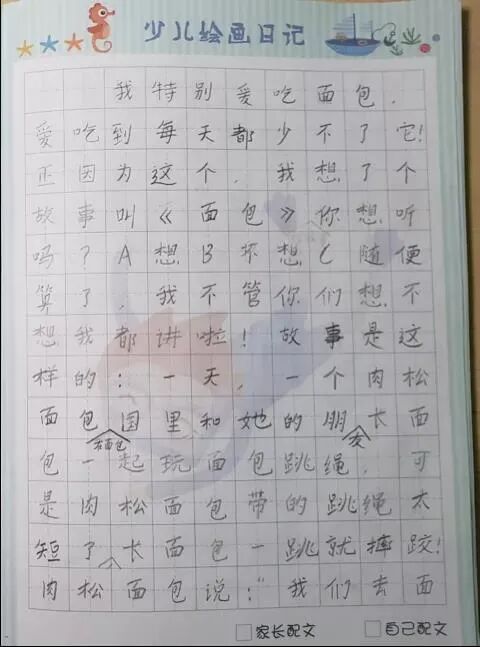 少儿绘画日记
我特别爱吃面包，
爱吃到每天都少不了它！
正因为这个，我想了个
故事叫《面包》你想听
吗？A想B不想C随便
算了，我不管你们想不
想我都讲啦！故事是这
样的：一天，一个肉松
面包在面包国里和她的朋友长面
包一起玩面包跳绳，可
是肉松面包带的跳绳太
短了，长面包一跳就摔跤！
肉松面包说：“我们去面
家长配文 自己配文